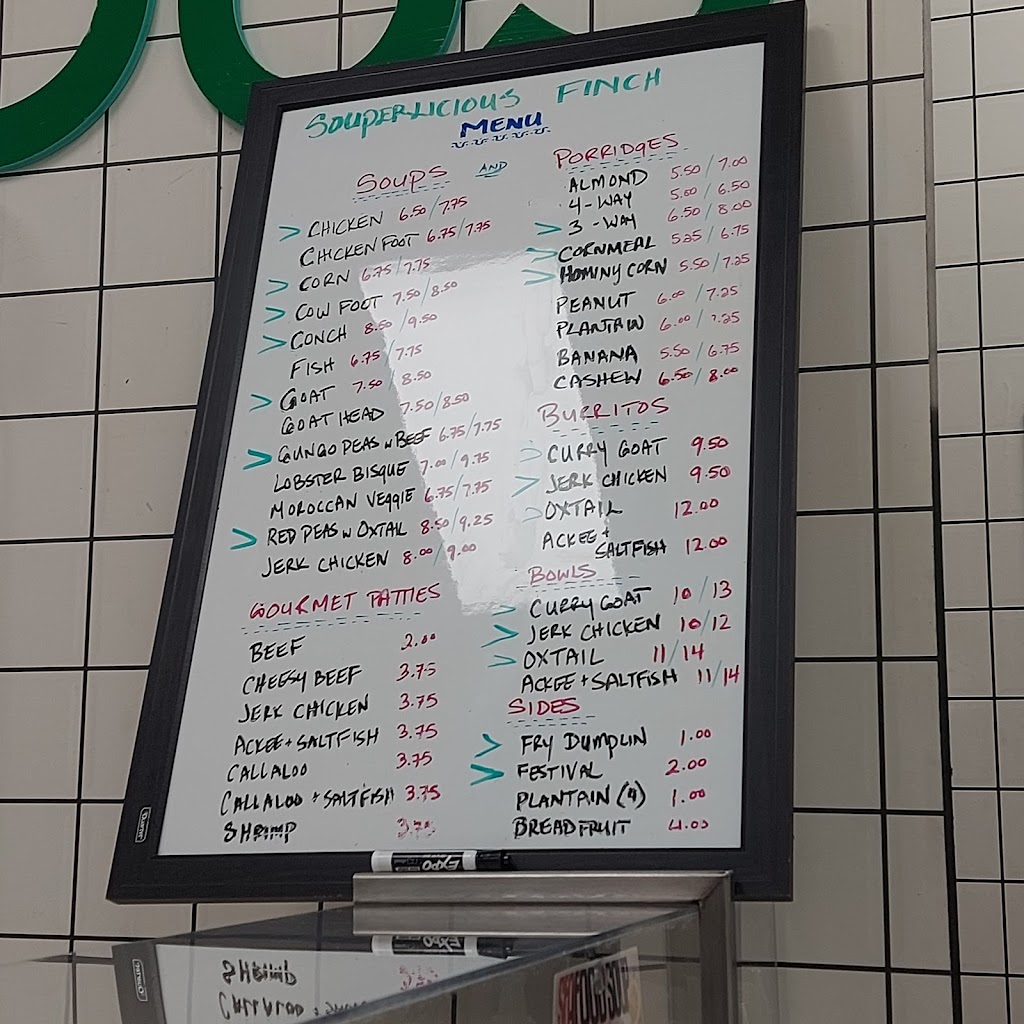 SOUPERLICIOUS FINCH
MENU
SOUPS AND
> CHICKEN 6.50/7.75
CHICKEN FOOT 6.75/7.75
> CORN 6.75/7.75
> COW FOOT 7.50/8.50
> CONCH 8.50/9.50
FISH 6.75/7.75
> GOAT 7.50/8.50
GOAT HEAD 7.50/8.50
> GUNGO PEAS w BEEF 6.75/7.75
LOBSTER BISQUE 7.00/9.75
MOROCCAN VEGGIE 6.75/7.75
> RED PEAS w OXTAIL 8.50/9.25
JERK CHICKEN 8.00/9.00
GOURMET PATTIES
BEEF 2.00
CHEESY BEEF 3.75
JERK CHICKEN 3.75
ACKEE + SALTFISH 3.75
CALLALOO 3.75
CALLALOO + SALTFISH 3.75
SHRIMP
PORRIDGES
ALMOND 5.50/7.00
4-WAY 5.00/6.50
> 3-WAY 6.50/8.00
> CORNMEAL 5.25/6.75
> HOMINY CORN 5.50/7.25
PEANUT 6.00/7.25
PLANTAIN 6.00/7.25
BANANA 5.50/6.75
CASHEW 6.50/8.00
BURRITOS
> CURRY GOAT 9.50
> JERK CHICKEN 9.50
> OXTAIL 12.00
ACKEE +
SALTFISH 12.00
BOWLS
> CURRY GOAT 10/13
> JERK CHICKEN 10/12
> OXTAIL 11/14
ACKEE + SALTFISH 11/14
SIDES
> FRY DUMPLIN 1.00
> FESTIVAL 2.00
PLANTAIN (4) 1.00
BREADFRUIT 4.00
EXPO